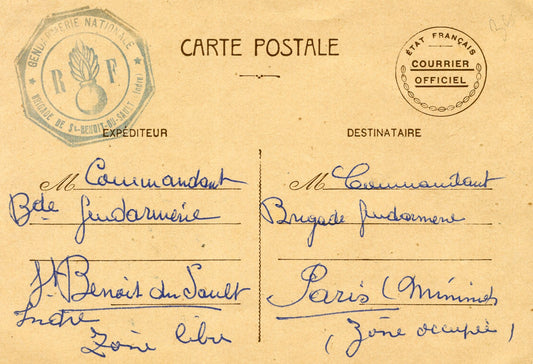 GENDARMERIE NATIONALE
R F
BRIGADE DE St-BENOIT-DU-SAULT (Indre)
CARTE POSTALE
ÉTAT FRANÇAIS
COURRIER
OFFICIEL
EXPÉDITEUR
M Commandant
Bde Gendarmerie
St Benoit du Sault
Indre
Zône libre
DESTINATAIRE
M Commandant
Brigade Gendarmerie
Paris (Minimes
(Zône occupée)